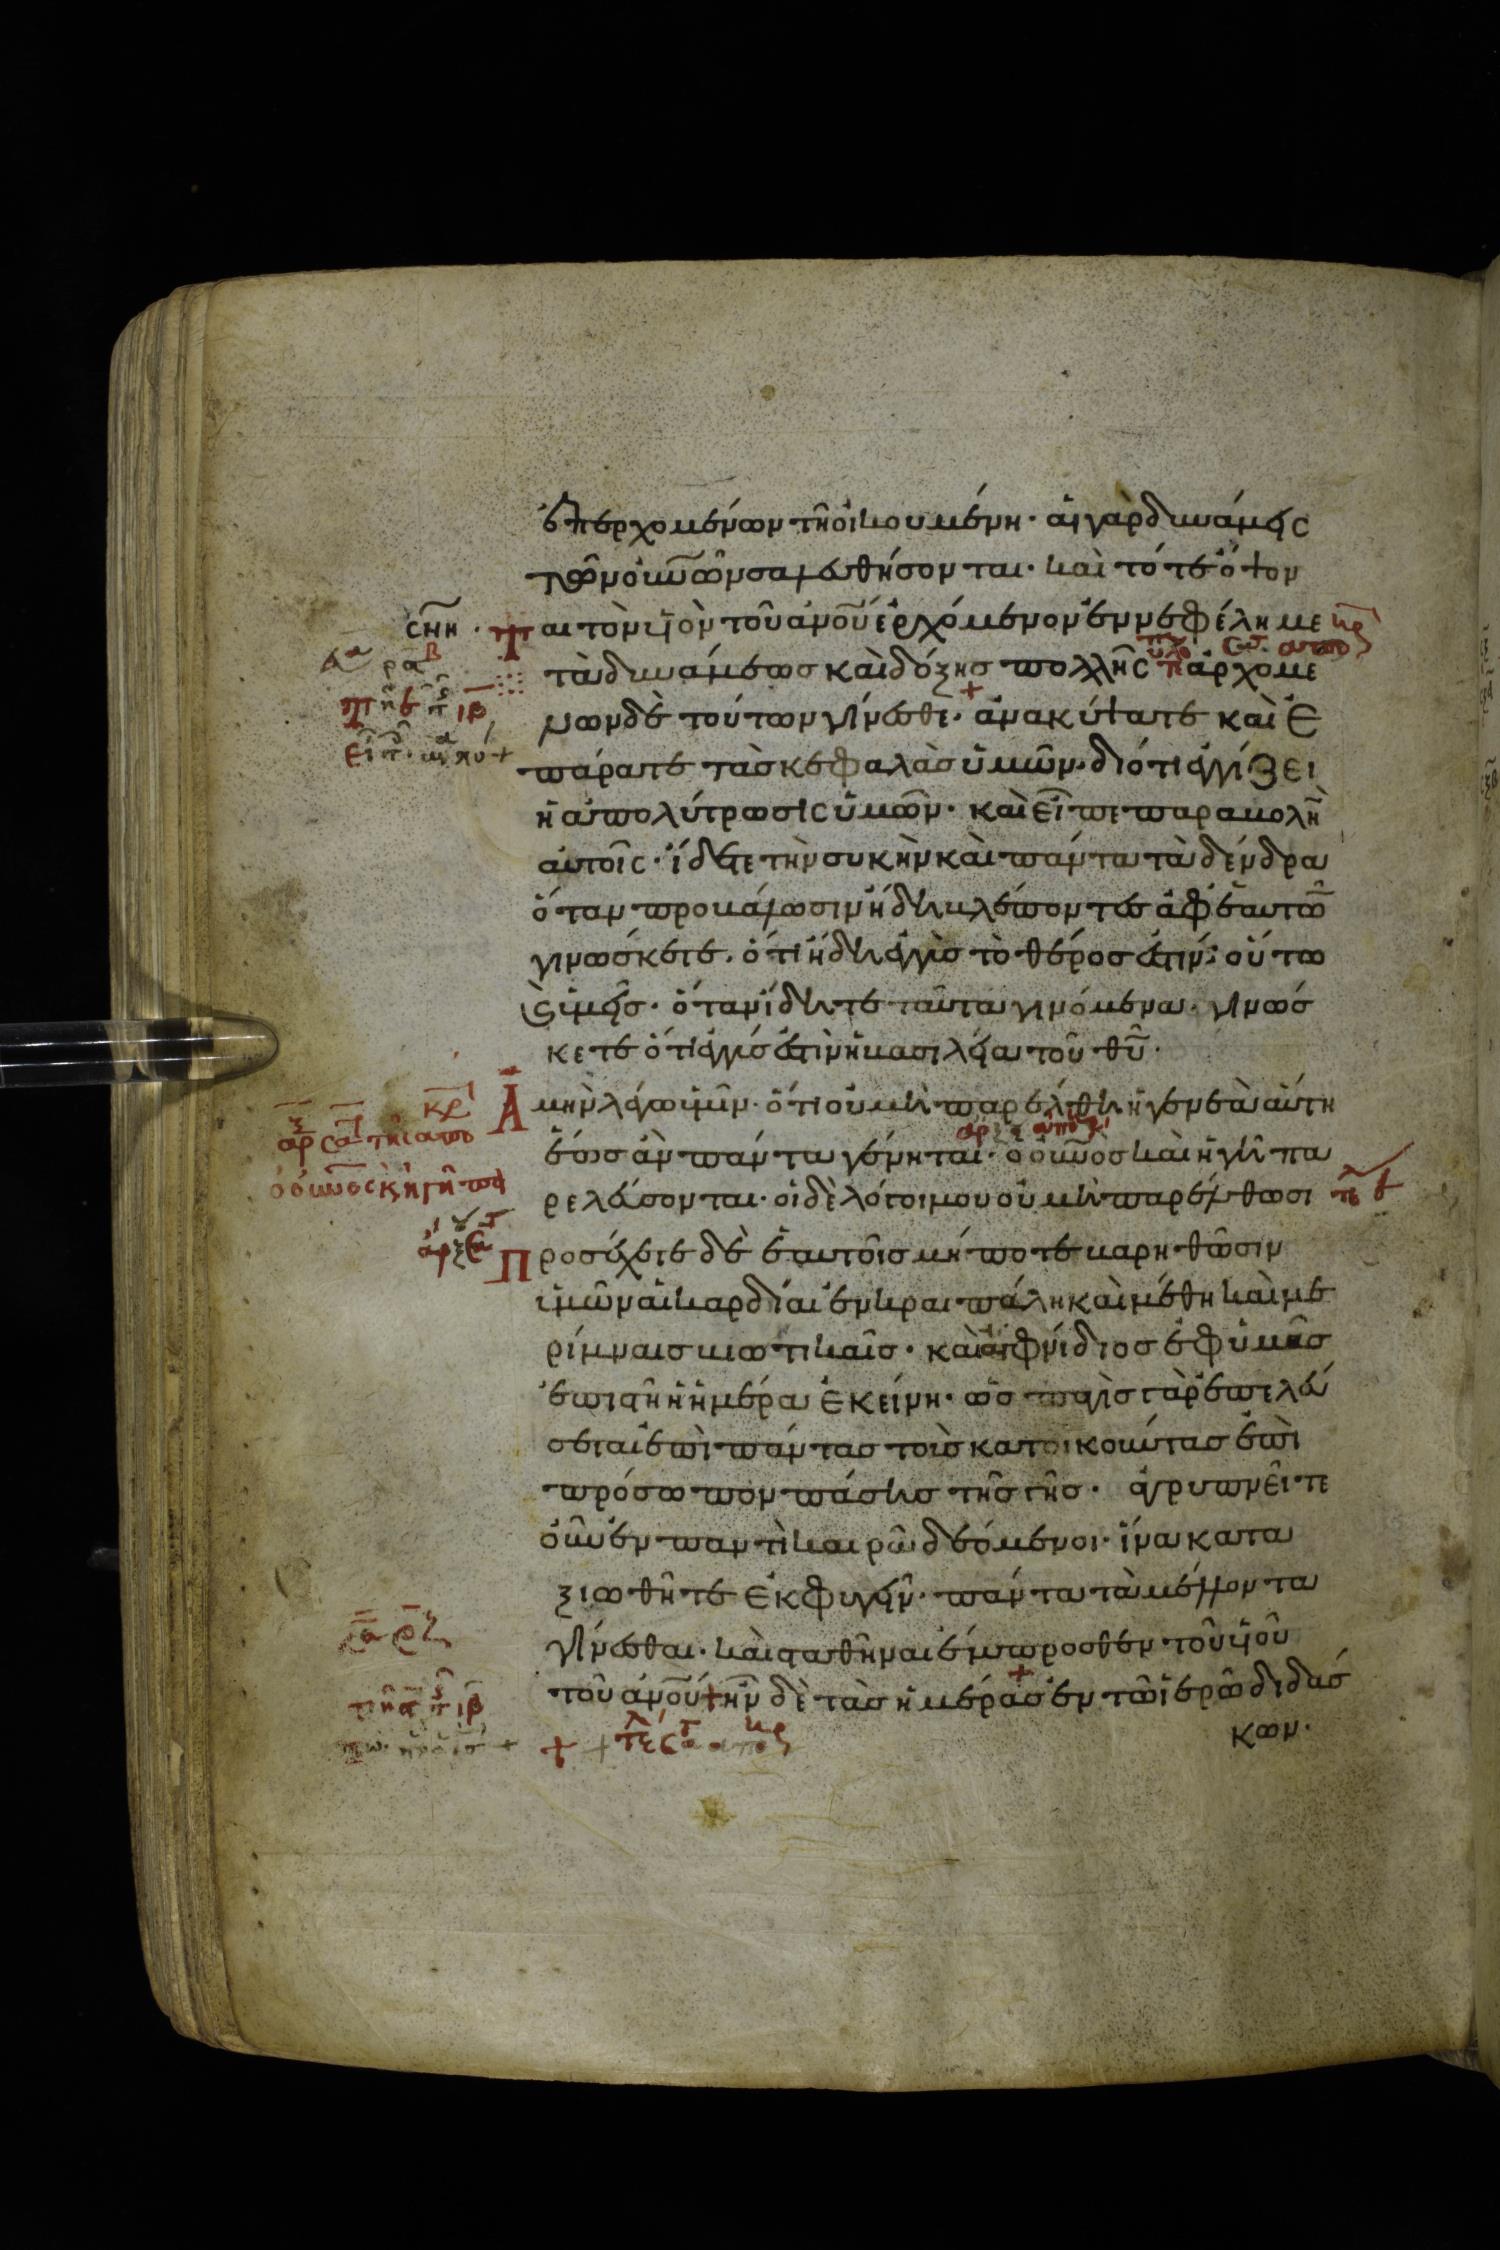 ἐπερχομένων τῆ οἰκουμένη· αἱ γὰρ δυνάμεις
τῶν οὐν̅ῶν σαλευθήσονται· καὶ τότε ὄψον
ται τὸν υἱὸν τοῦ ἀνοῦ ἐρχόμενον ἐν νεφέλη με
τὰ δυνάμεως καὶ δόξης πολλῆς ἀρχομέ
νων δὲ τούτων γίνεσθαι· ἀνακύψατε καὶ ἐ
πάρατε τὰς κεφαλὰς ὑμῶν· διότι ἐγγίζει
ἡ ἀπολύτρωσις ὑμῶν· καὶ εἶπε παραβολὴ̅
αὐτοῖς· ἴδετε τὴν συκὴν καὶ πάντα τὰ δένδρα
ὅταν προβάλωσιν ἤδη βλέποντες ἀφ ἑαυτῶ̅
γινώσκετε· ὅτι ἤδη ἐγγὺς τὸ θέρος ἐστίν· οὕτω
ς ὑμεῖς· ὅταν ἴδητε ταῦτα γινόμενα· γινώσ
κετε ὅτι ἐγγύς ἐστιν ἡ βασιλεία τοῦ θῦ·
Ἀμὴν λέγω ὑμῖν· ὅτι οὐ μὴ παρέλθη ἡ γενεὰ αὕτη
ἕως ἂν πάντα γένηται· ὁ οὐν̅ὸς καὶ ἡ γῆ πα
ρελεύσονται· οἱ δὲ λόγοι μου οὐ μὴ παρέλθωσι
Προσέχετε δὲ ἑαυτοῖς μήποτε βαρηθῶσιν
ὑμῶν αἱ καρδίαι ἐν κραιπάλη καὶ μέθη καὶ με
ρίμναις βιωτικαῖς· καὶ αἰφνίδιος ἐφ ὑμᾶς
ἐπιστῆ ἡ ἡμέρα ἐκείνη· ὡς παγὶς γὰρ ἐπελεύ
σεται ἐπὶ πάντας τοὺς κατοικοῦντας ἐπὶ
πρόσωπον πάσης τῆς γῆς· ἀγρυπνεῖτε
οὖν ἐν παντὶ καιρῶ δεόμενοι· ἵνα κατα
ξιωθῆτε ἐκφυγεῖν· πάντα τὰ μέλλοντα
γίνεσθαι· καὶ σταθῆναι ἔμπροσθεν τοῦ υἱοῦ
τοῦ ἀνοῦ ἦν δὲ τὰς ἡμέρας ἐν τῶ ἱερῶ διδάσ
κων·